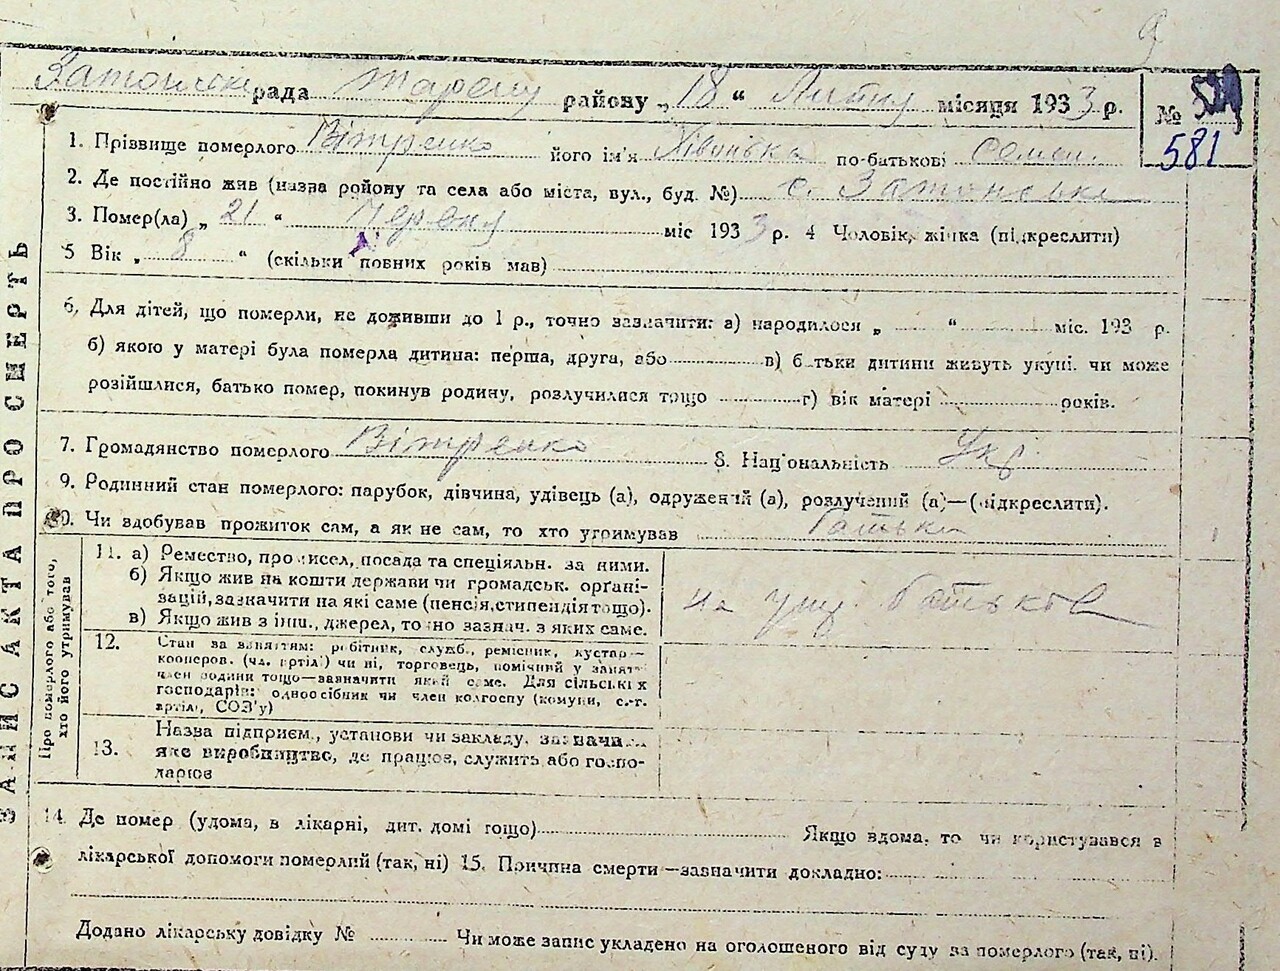 рада района „18“ Лютня місяця 1933 р. № 581
1. Прізвище померлого Вітренко його ім'я по-батькові Семен.
2. Де постійно жив (назва району та села або міста, вул., буд. №) с. Затонське
3. Помер(ла) „21“ Червня міс 1933 р. 4 Чоловік, жінка (підкреслити)
5 Вік „8“ (скільки повних років мав)
6. Для дітей, що померли, не доживши до 1 р., точно зазначити: а) народилося „ “ міс. 193 р.
б) якою у матері була померла дитина: перша, друга, або в) батьки дитини живуть укупі. чи може
розійшлися, батько помер, покинув родину, розлучилися тощо г) вік матері років.
7. Громадянство померлого Вітренко 8. Національність Укр.
9. Родинний стан померлого: парубок, дівчина, удівець (а), одружений (а), розлучений (а)—(підкреслити).
10. Чи здобував прожиток сам, а як не сам, то хто утримував батьки
ЗАПИС АКТА ПРО СМЕРТЬ
Про померлого або того, хто його утримував
11. а) Ремество, промисел, посада та спеціяльн. за ними.
б) Якщо жив на кошти держави чи громадськ. орґані-
зацій, зазначити на які саме (пенсія, стипендія тощо).
в) Якщо жив з інш., джерел, точно зазнач. з яких саме.
на утр. батьков
12. Стан за заняттям: робітник, служб., ремісник, кустар—
кооперов. (чл. артілі) чи ні, торговець, помічний у занятті
член родини тощо—зазначити який саме. Для сільських
господарів: одноосібник чи член колгоспу (комуни, с.-г.
артілі, СОЗ'у)
13. Назва підприєм., установи чи закладу, зазначи..
яке виробництво, де працює, служить або госпо-
дарює
14. Де помер (удома, в лікарні, дит. домі тощо) Якщо вдома, то чи користувався в
лікарської допомоги померлий (так, ні) 15. Причина смерти—зазначити докладно:
Додано лікарську довідку № Чи може запис укладено на оголошеного від суду за померлого (так, ні).